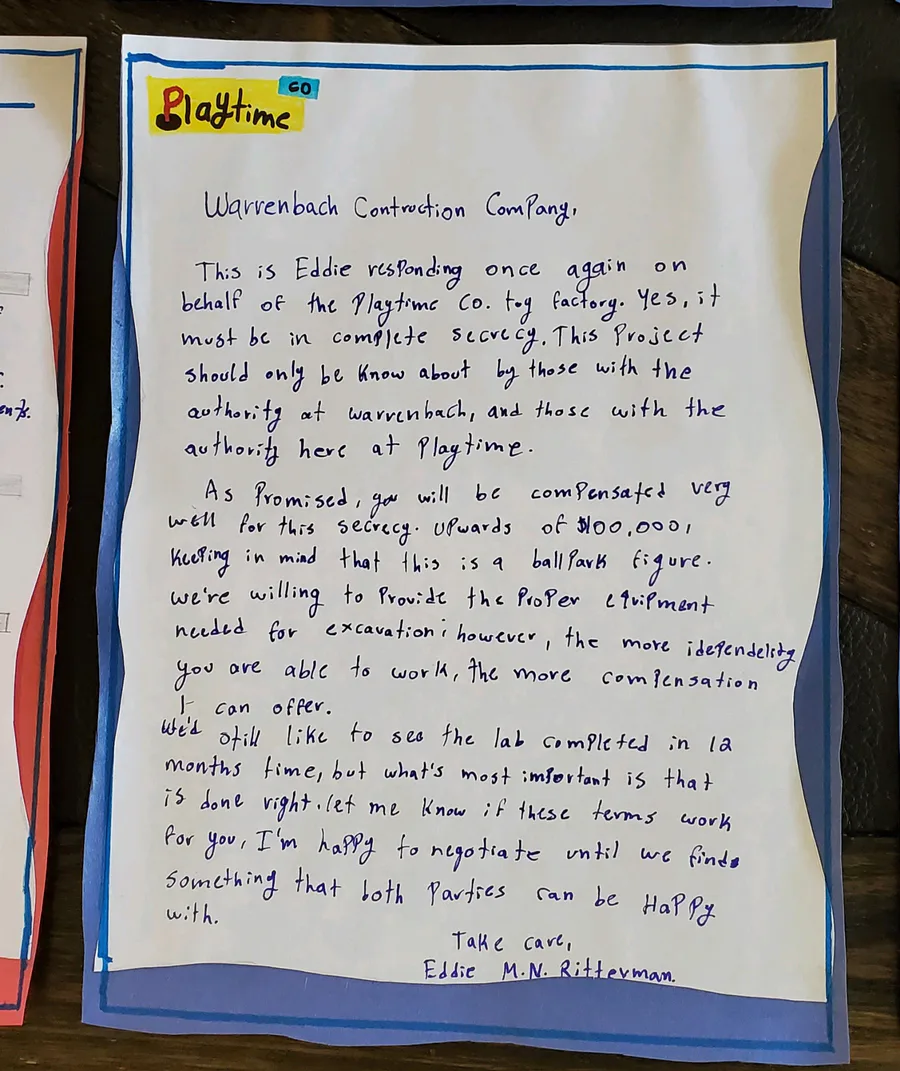 Playtime CO
Warrenbach Contruction Company,
This is Eddie responding once again on
behalf of the Playtime Co. toy factory. Yes, it
must be in complete secrecy. This Project
should only be know about by those with the
authority at warrenbach, and those with the
authority here at Playtime.
As Promised, you will be compensated very
well for this secrecy. upwards of $100,000,
Keeping in mind that this is a ballpark figure.
we're willing to Provide the Proper equipment
needed for excavation; however, the more idependelity
you are able to work, the more compensation
I can offer.
We'd still like to see the lab completed in 12
months time, but what's most important is that
is done right. let me know if these terms work
for you, I'm happy to negotiate until we finds
something that both Parties can be Happy
with.
Take care,
Eddie M.N. Ritterman.